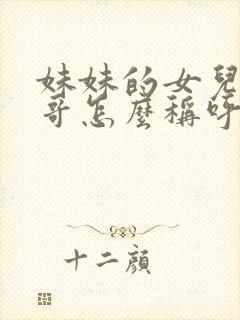 妹妹的女兒
哥怎麼稱呼
十二顏